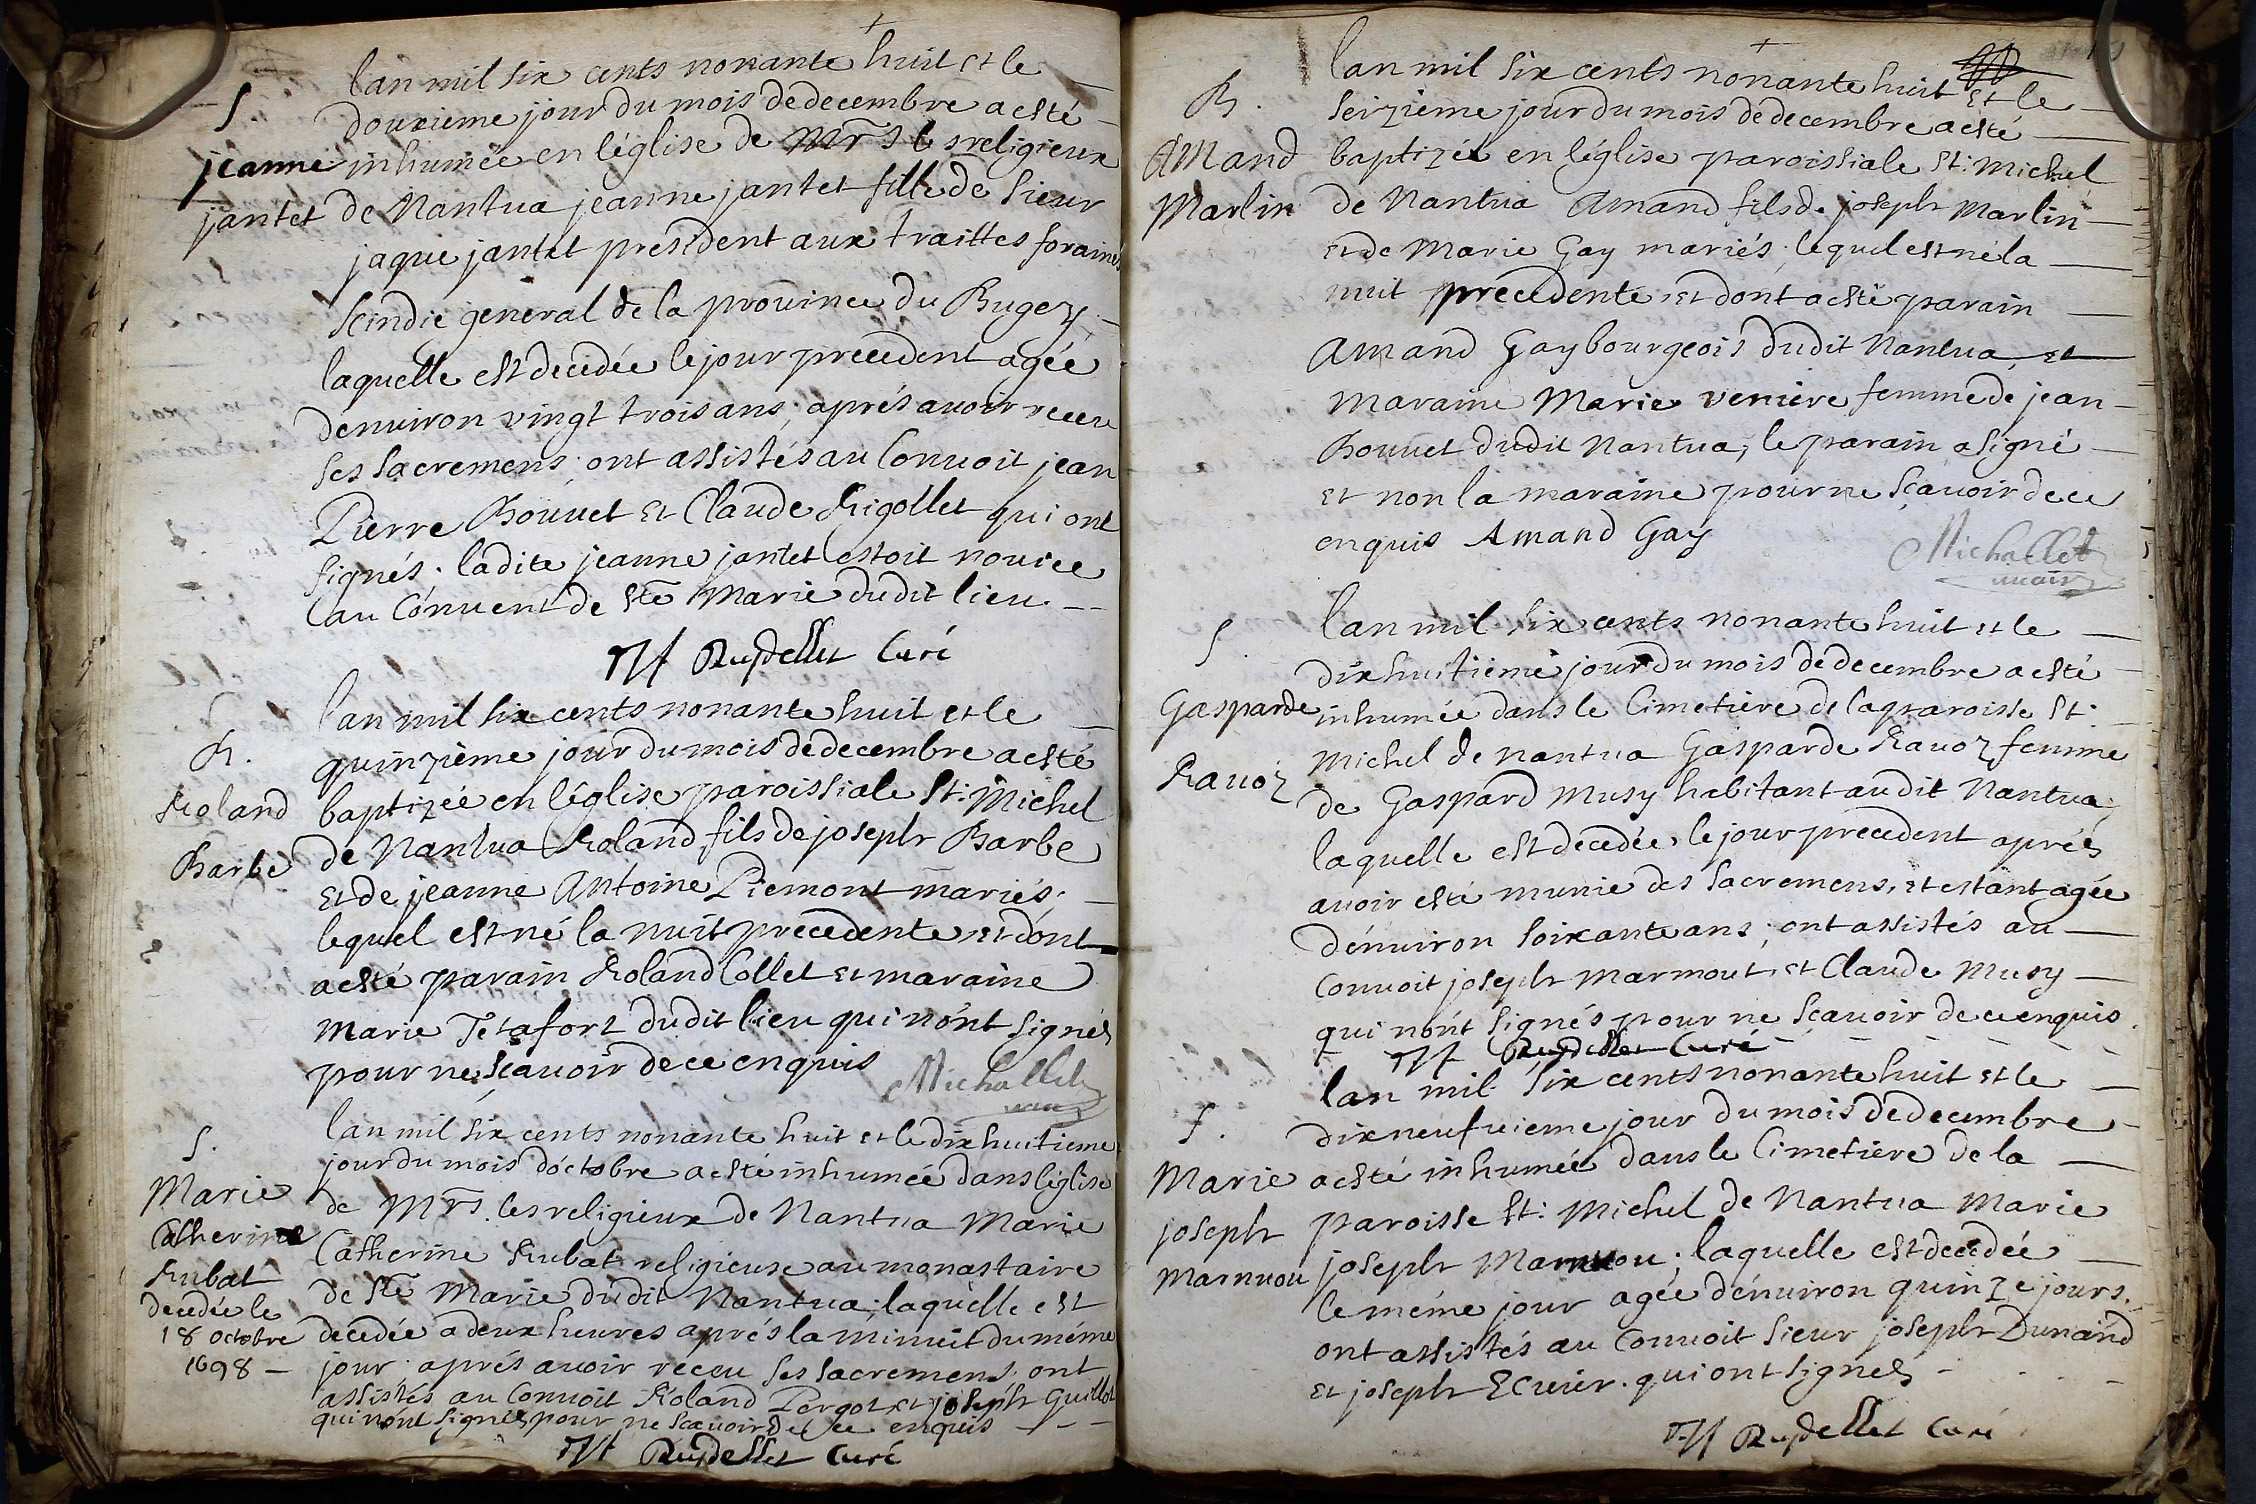 lan mil six cents nonante huit et le
S.
douxieme jour du mois de decembre a esté
jeanne
inhumée en léglise de Mrs les religieux
jantet
de Nantua jeanne jantet fille de sieur
jaque jantet president aux traittes foraines
scindic general de la prouince du Bugey
laquelle est decedée le jour precedent agée
denuiron vingt trois ans, aprés auoir receu
ses sacremens; ont assistés au conuoit jean
Pierre Bouuet et Claude Rigollet qui ont
signés; ladite jeanne jantet estoit nouice
au Conuent de Ste Marie dudit lieu.
Ruydellet Curé
lan mil six cents nonante huit et le
B.
quinzième jour du mois de decembre a esté
Roland
baptizée en léglise paroissiale St: Michel
Barbe
de Nantua Roland fils de joseph Barbe
et de jeanne Antoine Piemont mariés;
lequel est né la nuit precedente et dont
a esté parain Roland Collet et maraine
Marie Tetafort dudit lieu qui nónt signés
pour ne scauoir de ce enquis
Michallet
vicaire
S.
lan mil six cents nonante huit et le dix huitieme
jour du mois dóctobre a esté inhumée dans léglise
Marie
de Mrs. les religieux de Nantua Marie
Catherine
Catherine Rubat religieuse au monastaire
Rubat
de Ste Marie dudit Nantua; laquelle est
decedée le
18 octobre
decedée a deux heures aprés la minuit du méme
1698 —
jour aprés auoir receu ses sacremens; ont
assistés au conuoit Roland Pergot et joseph Guillot
qui nónt signés pour ne scauoir de ce enquis
Ruydellet Curé
lan mil six cents nonante huit et le
B.
seizieme jour du mois de decembre a esté
Amand
baptizée en léglise paroissiale St: Michel
Marlin
de Nantua Amand fils de joseph Marlin
et de Marie Gay mariés; lequel est né la
nuit precedente et dont a esté parain
Amand Gay bourgeois dudit Nantua et
maraine Marie veniere femme de jean
Bouuet dudit Nantua; le parain a signé
et non la maraine pour ne scauoir de ce
enquis Amand Gay
Michallet
vicaire
S.
lan mil six cents nonante huit et le
dix huitieme jour du mois de decembre a esté
Gasparde
inhumée dans le Cimetiere de la paroisse St:
Rauoz
Michel de Nantua Gasparde Rauoz femme
de Gaspard Musy habitant audit Nantua;
laquelle est decedée le jour precedent aprés
auoir esté munie des sacremens, et estant agée
dénuiron soixante ans; ont assistés au
conuoit joseph Marmout et Claude Musy
qui nónt signés pour ne scauoir de ce enquis
Ruydellet Curé
lan mil six cents nonante huit et le
S.
dix neufuieme jour du mois de decembre
Marie
a esté inhumée dans le Cimetiere de la
joseph
paroisse St: Michel de Nantua Marie
Marnuou
joseph Marnuou; laquelle est decedée
le méme jour agée dénuiron quinze jours.
ont assistés au conuoit sieur joseph Dunand
et joseph Ecuier. qui ont signés
Ruydellet Curé